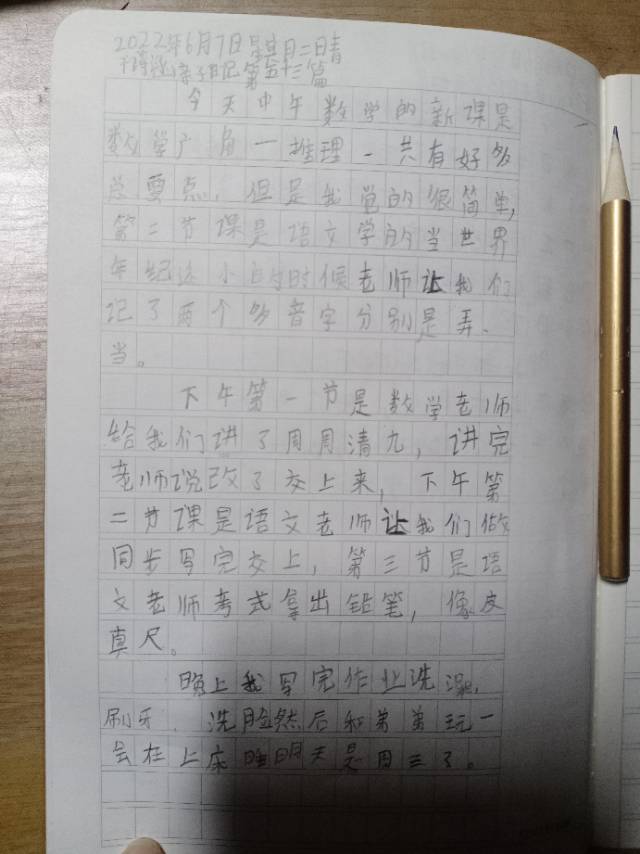 2022年6月7日星期二日青
亲子日记第五十三篇
今天中午数学的新课是
数学广角一推理一共有好多
总要点,但是我觉的很简单,
第二节课是语文学的当世界
年纪还小的时候老师让我们
记了两个多音字分别是弄、
当。
下午第一节是数学老师
给我们讲了周周清九,讲完
老师说改了交上来,下午第
二节课是语文老师让我们做
同步写完交上,第三节是语
文老师考式拿出铅笔,像皮
直尺。
晚上我写完作业洗澡,
刷牙、洗脸然后和弟弟玩一
会在上床睡明天是周三了。